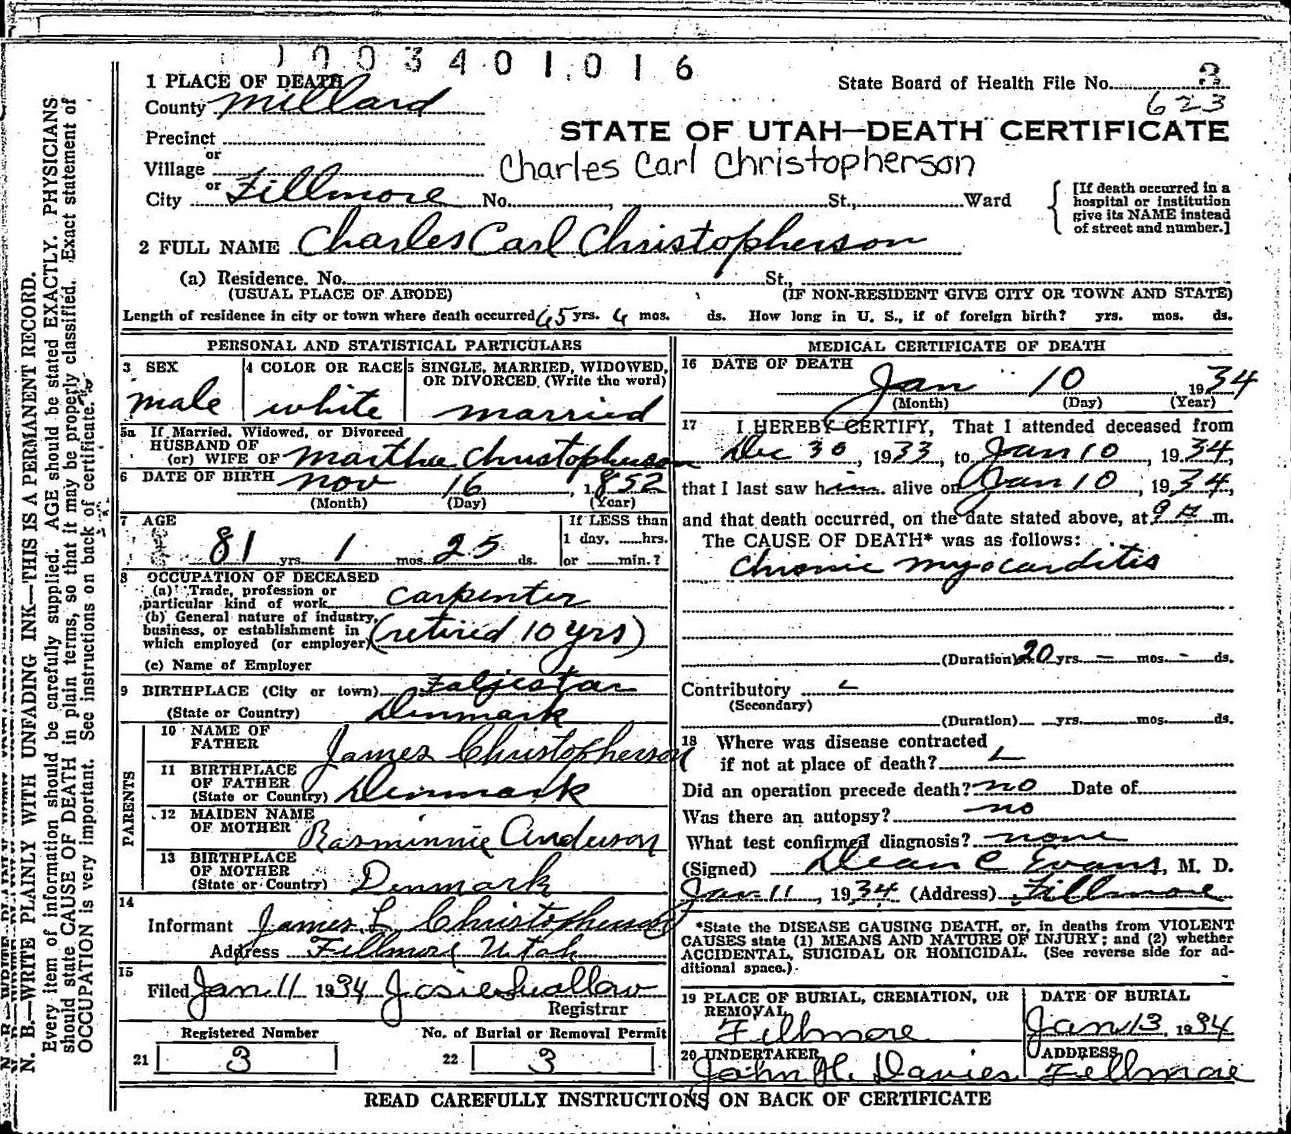 1003401016
1 PLACE OF DEATH
State Board of Health File No. 3
County Millard
623
STATE OF UTAH—DEATH CERTIFICATE
Precinct
or
Village
Charles Carl Christopherson
or
City Fillmore No. , St., Ward
[If death occurred in a
hospital or institution
give its NAME instead
of street and number.]
2 FULL NAME Charles Carl Christopherson
(a) Residence. No. St.,
(USUAL PLACE OF ABODE) (IF NON-RESIDENT GIVE CITY OR TOWN AND STATE)
Length of residence in city or town where death occurred 65 yrs. 4 mos. ds. How long in U. S., if of foreign birth? yrs. mos. ds.
PERSONAL AND STATISTICAL PARTICULARS
3 SEX
male
4 COLOR OR RACE
white
5 SINGLE, MARRIED, WIDOWED,
OR DIVORCED. (Write the word)
married
5a If Married, Widowed, or Divorced
HUSBAND OF
(or) WIFE OF Martha Christopherson
6 DATE OF BIRTH Nov 16, 1852
(Month) (Day) (Year)
7 AGE
81 yrs. 1 mos. 25 ds.
If LESS than
1 day, hrs.
or min.?
8 OCCUPATION OF DECEASED
(a) Trade, profession or
particular kind of work Carpenter
(b) General nature of industry,
business, or establishment in
which employed (or employer) (retired 10 yrs)
(c) Name of Employer
9 BIRTHPLACE (City or town)
(State or Country) Denmark
PARENTS
10 NAME OF
FATHER James Christopherson
11 BIRTHPLACE
OF FATHER
(State or Country) Denmark
12 MAIDEN NAME
OF MOTHER Rasminnie Anderson
13 BIRTHPLACE
OF MOTHER
(State or Country) Denmark
14
Informant James L Christopherson
Address Fillmore Utah
15
Filed Jan 11 1934 Josie Swallow
Registrar
Registered Number
21 3
No. of Burial or Removal Permit
22 3
MEDICAL CERTIFICATE OF DEATH
16 DATE OF DEATH
Jan 10 1934
(Month) (Day) (Year)
17 I HEREBY CERTIFY, That I attended deceased from
Dec 30, 1933, to Jan 10, 1934,
that I last saw him alive on Jan 10, 1934,
and that death occurred, on the date stated above, at 9 A m.
The CAUSE OF DEATH* was as follows:
Chronic myocarditis
(Duration) 20 yrs. — mos. - ds.
Contributory
(Secondary)
(Duration) yrs. mos. ds.
18 Where was disease contracted
if not at place of death?
Did an operation precede death? no Date of
Was there an autopsy? no
What test confirmed diagnosis? none
(Signed) Dean C Evans, M. D.
Jan 11, 1934 (Address) Fillmore
*State the DISEASE CAUSING DEATH, or, in deaths from VIOLENT
CAUSES state (1) MEANS AND NATURE OF INJURY; and (2) whether
ACCIDENTAL, SUICIDAL OR HOMICIDAL. (See reverse side for ad-
ditional space.)
19 PLACE OF BURIAL, CREMATION, OR
REMOVAL
Fillmore
DATE OF BURIAL
Jan 13, 1934
20 UNDERTAKER
John H. Davies
ADDRESS
Fillmore
READ CAREFULLY INSTRUCTIONS ON BACK OF CERTIFICATE
N. B.—WRITE PLAINLY WITH UNFADING INK—THIS IS A PERMANENT RECORD.
Every item of information should be carefully supplied. AGE should be stated EXACTLY. PHYSICIANS
should state CAUSE OF DEATH in plain terms, so that it may be properly classified. Exact statement of
OCCUPATION is very important. See instructions on back of certificate.